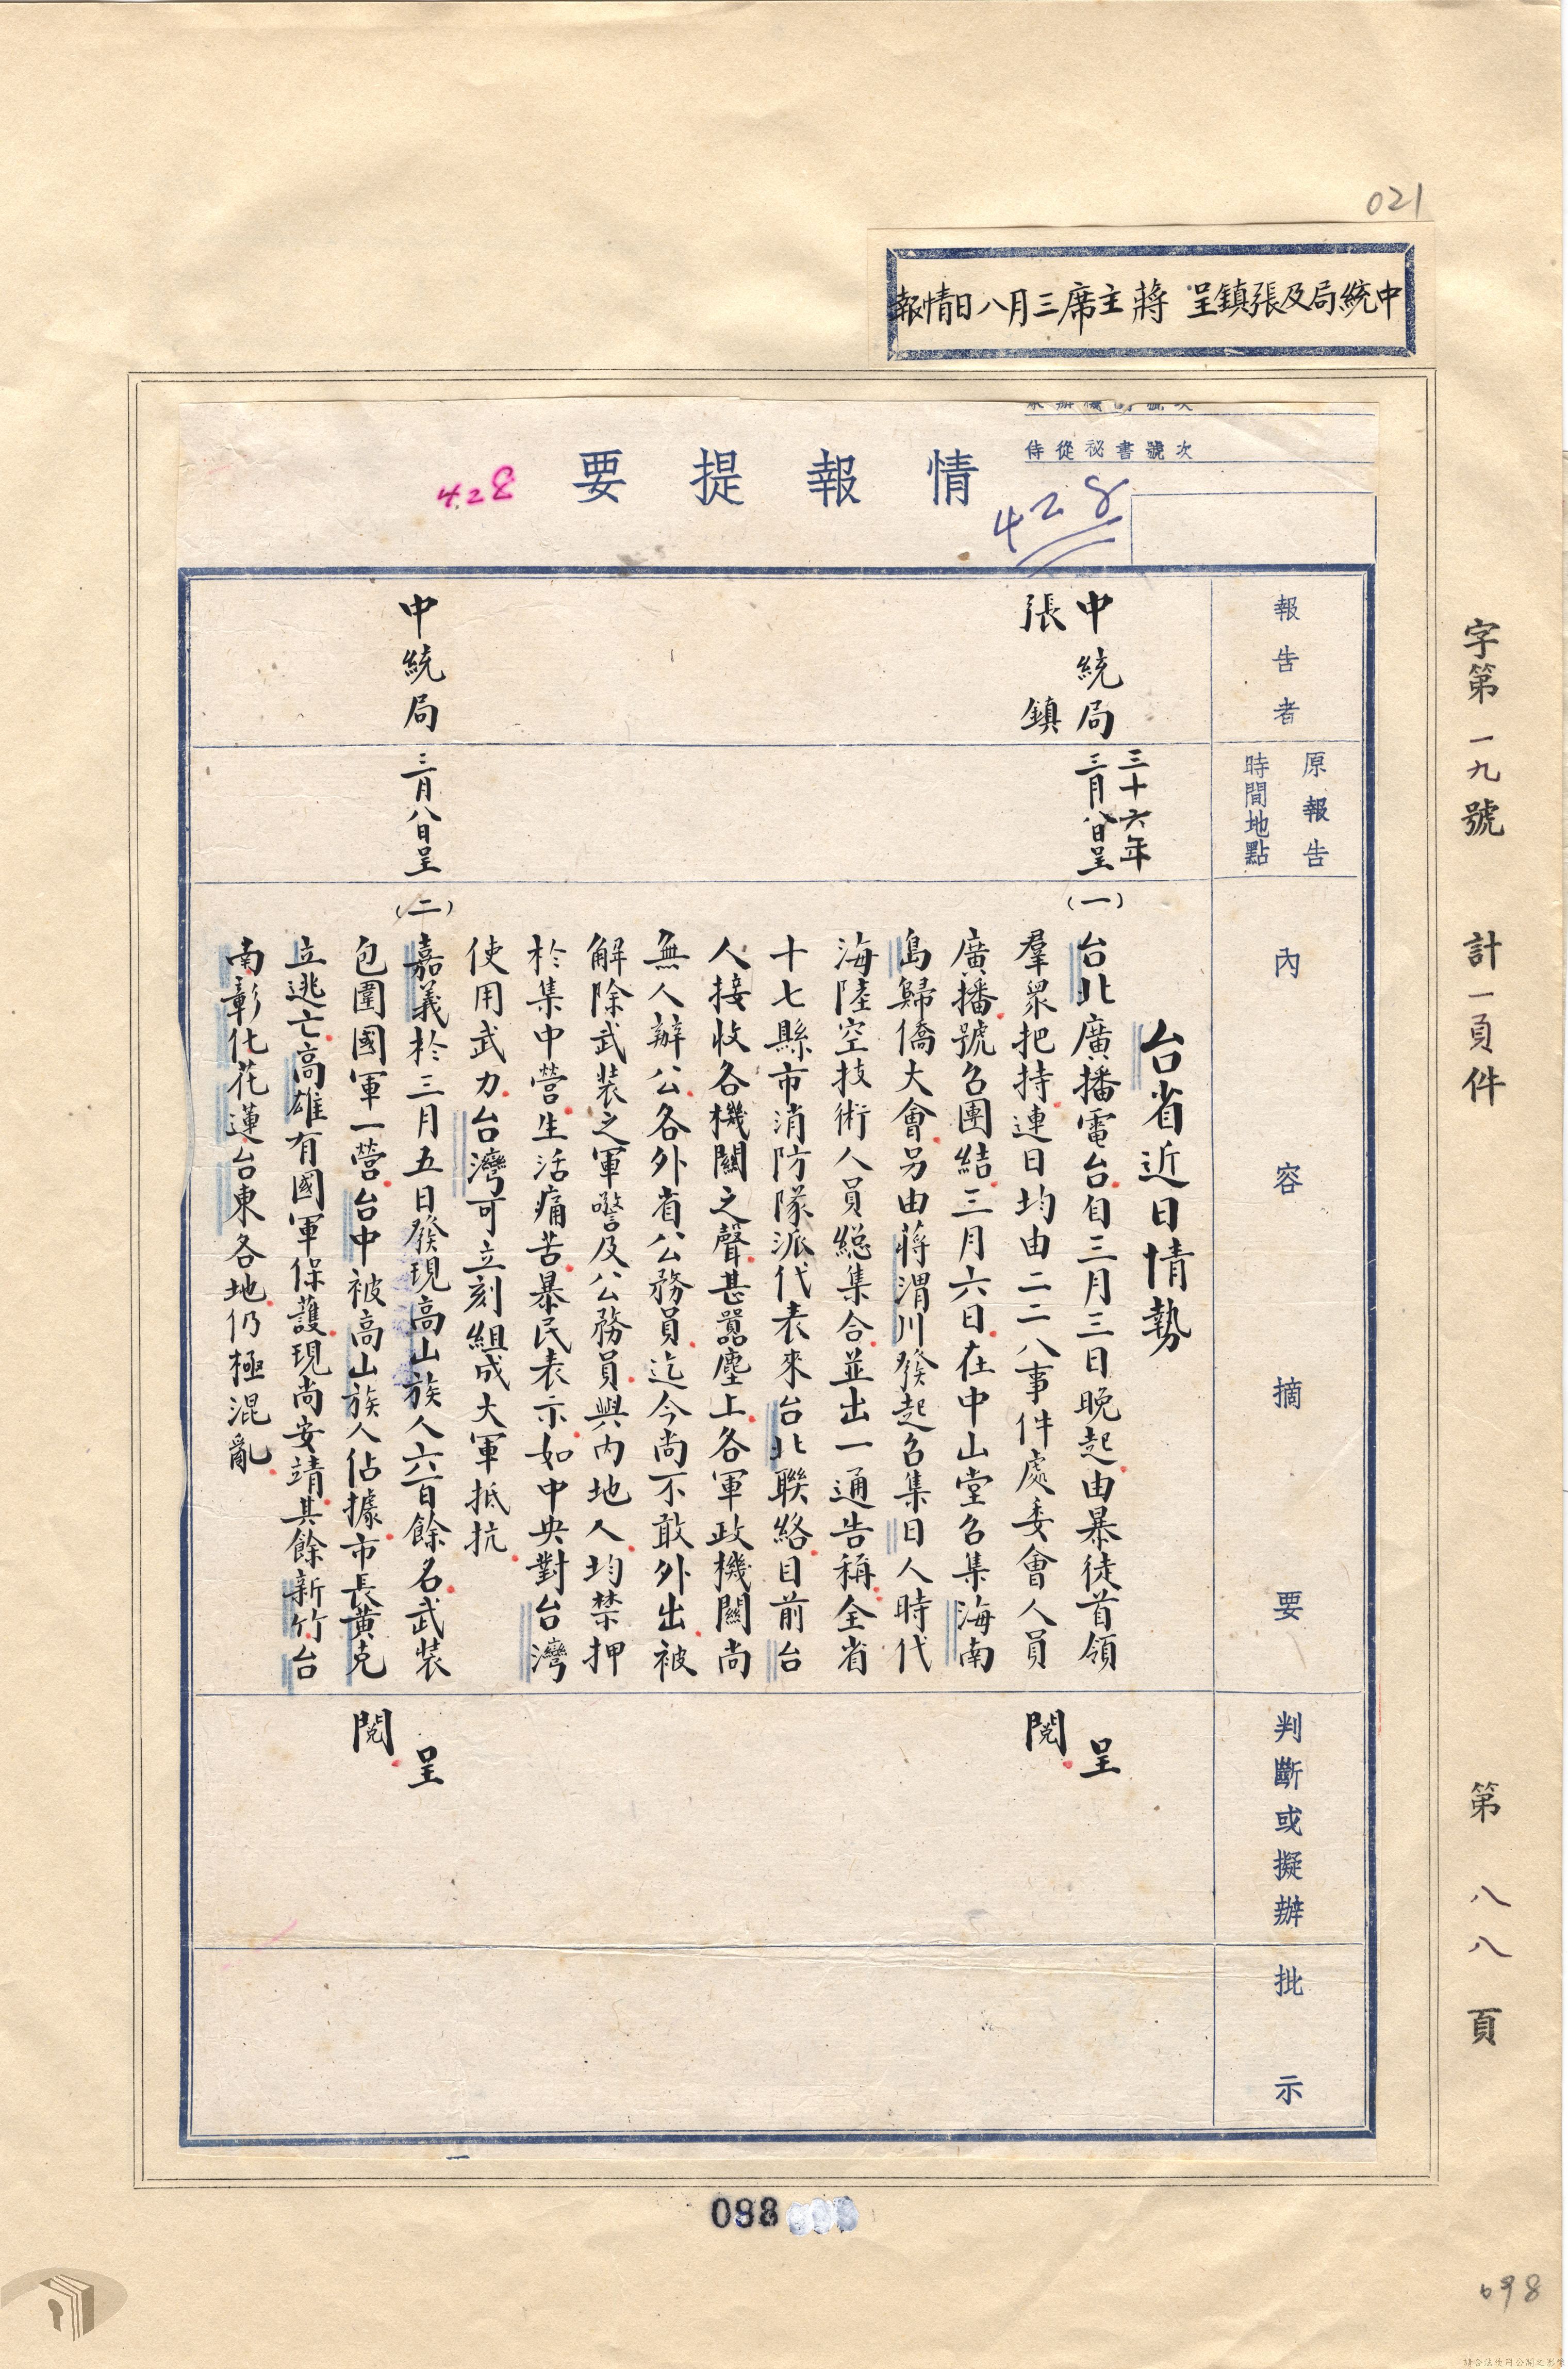 021
中統局及張鎮呈 蔣主席三月八日情報
字第一九號 計一頁件 第八八頁
侍從祕書號次
情報提要
428
428
報告者
原報告
時間地點
內容摘要
判斷或擬辦
批示
中統局
張鎮
三十六年
三月八日呈
台省近日情勢
(一)
台北廣播電台自三月三日晚起由暴徒首領
羣眾把持連日均由二二八事件處委會人員
廣播號召團結三月六日在中山堂召集海南
島歸僑大會另由蔣渭川發起召集日人時代
海陸空技術人員總集合並出一通告稱全省
十七縣市消防隊派代表來台北聯絡目前台
人接收各機關之聲甚囂塵上各軍政機關尚
無人辦公各外省公務員迄今尚不敢外出被
解除武裝之軍警及公務員與內地人均禁押
於集中營生活痛苦暴民表示如中央對台灣
使用武力台灣可立刻組成大軍抵抗
呈
閱
中統局
三月八日呈
(二)
嘉義於三月五日發現高山族人六百餘名武裝
包圍國軍一營台中被高山族人佔據市長黃克
立逃亡高雄有國軍保護現尚安靖其餘新竹台
南彰化花蓮台東各地仍極混亂
呈
閱
一
088
098
請合法使用公開之影像